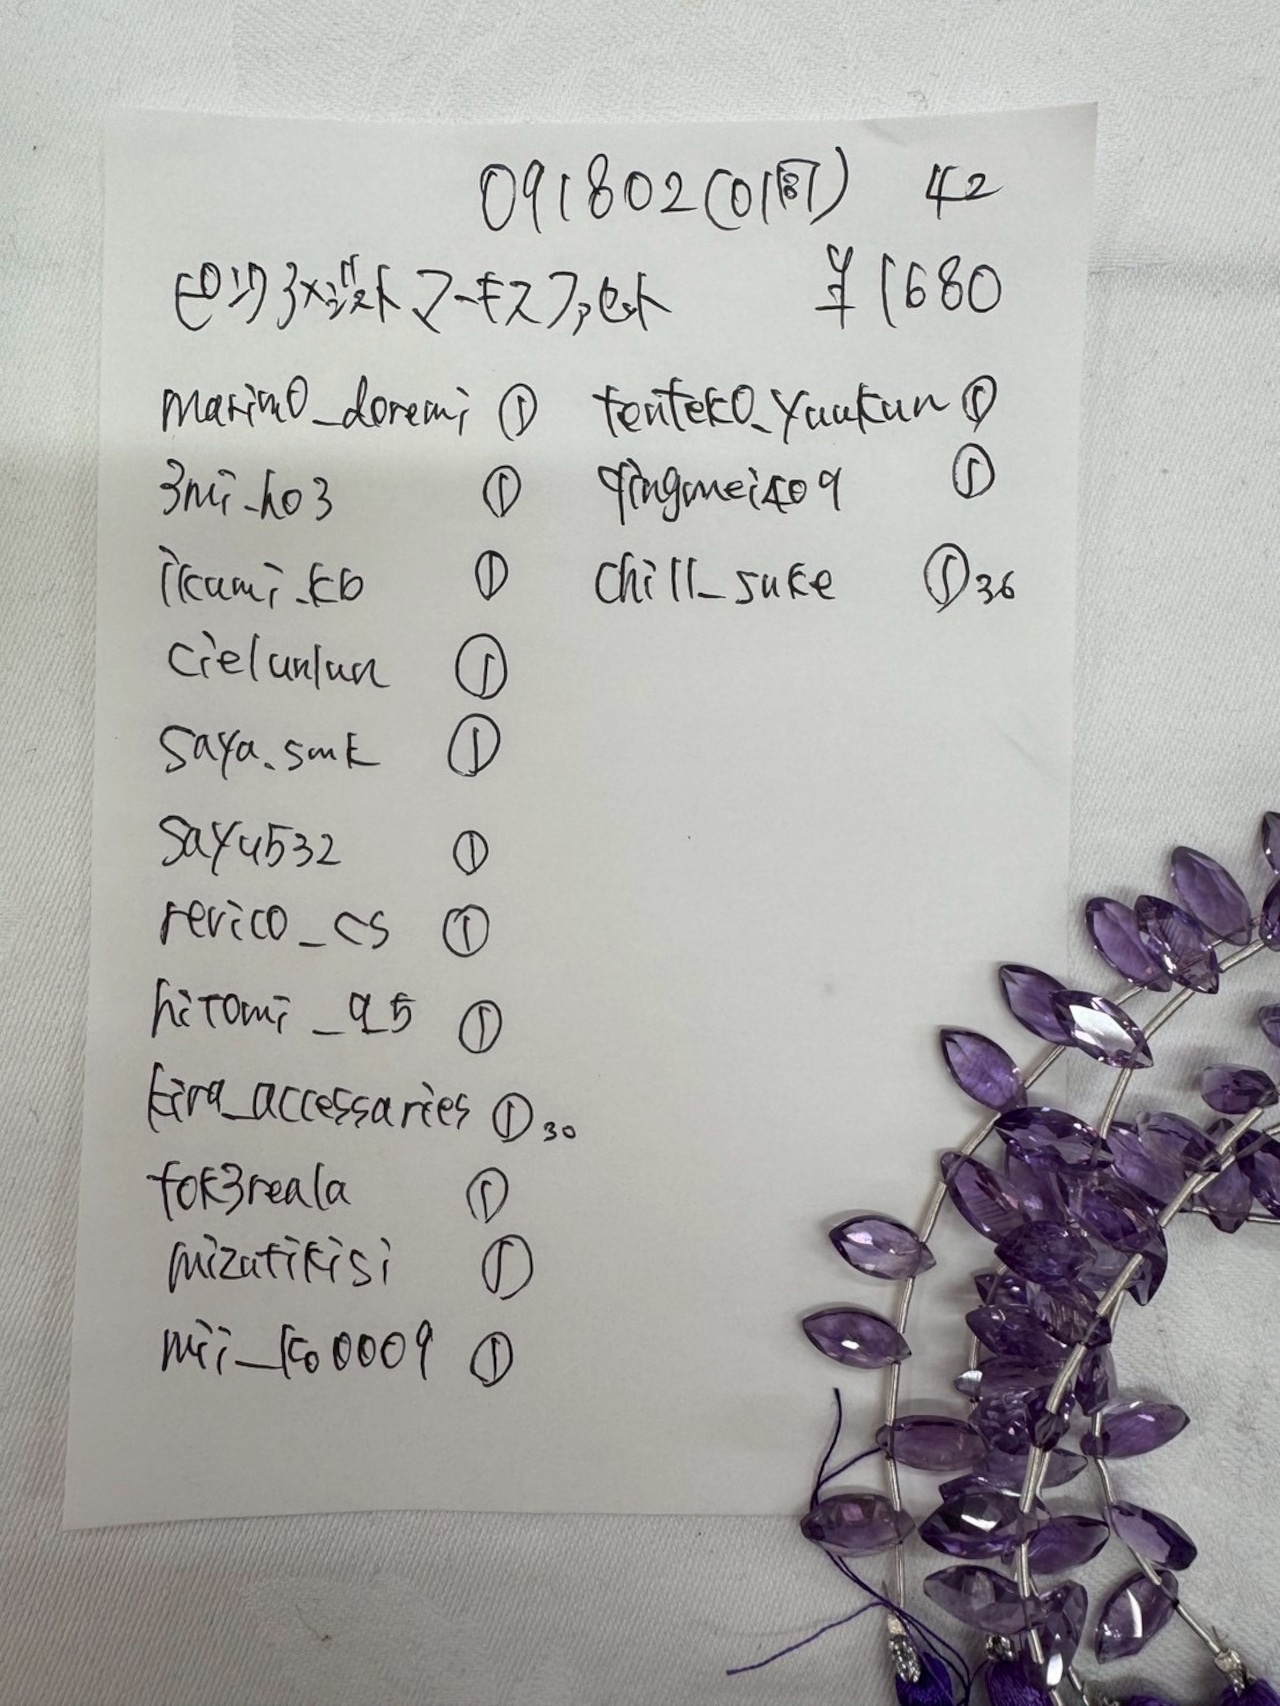 091802(01間) 42
ピンクアメジスト マーキスファセット ¥1680
marim0_doremi ①
3mi_ho3 ①
ikumi_kb ①
cielunlun ①
saya.smk ①
sayu532 ①
revico_cs ①
hitomi_9_5 ①
kira_accessaries ① 30
tok3reala ①
mizutikisi ①
mii_ko0009 ①
tenteko_yuukun ①
qingmei409 ①
chill_suke ① 36